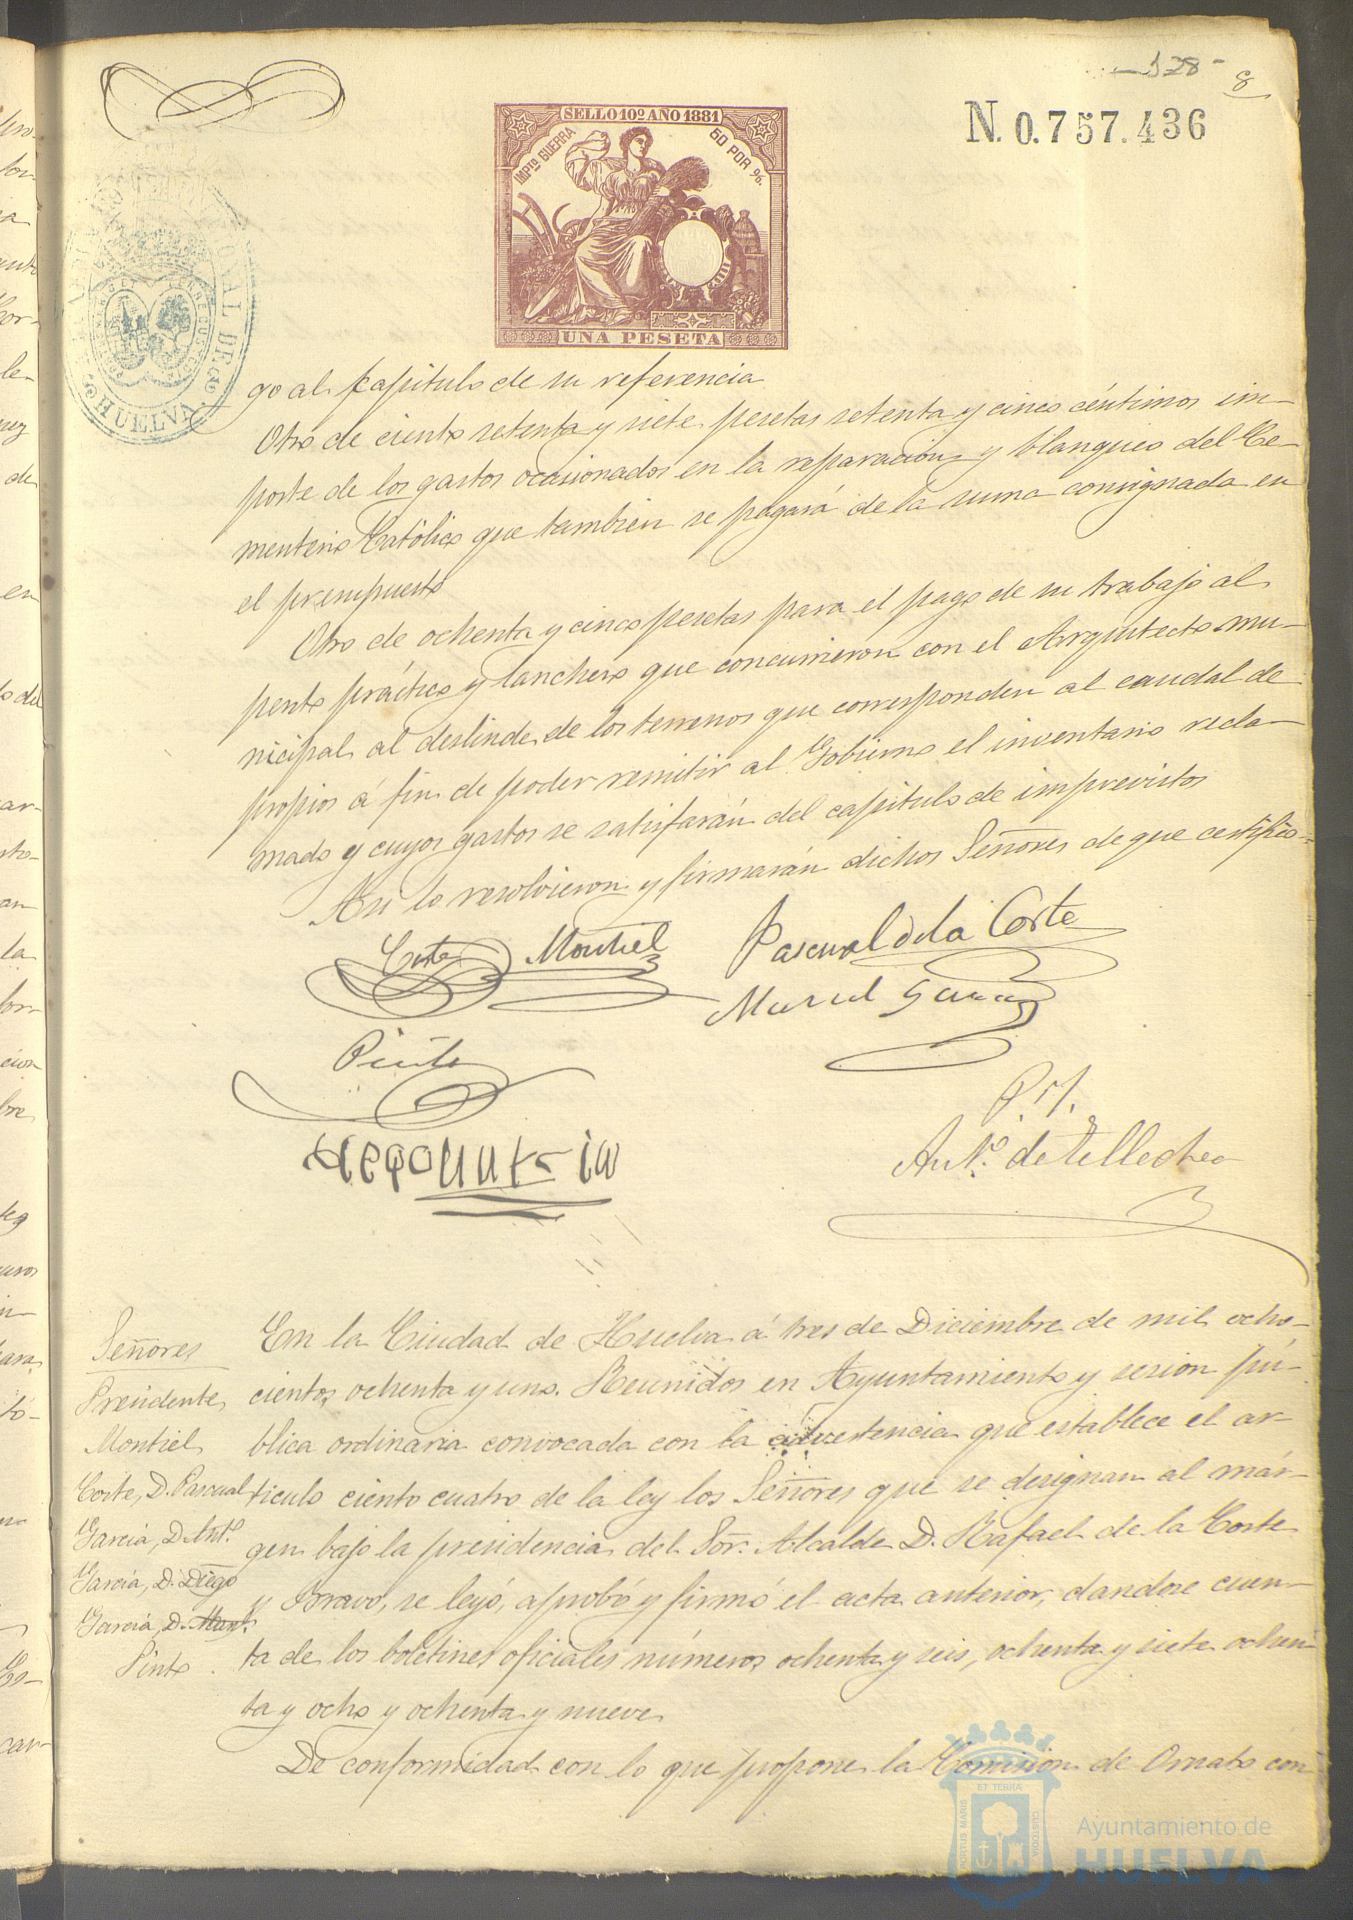 128
8
N. 0.757.436
SELLO 10º AÑO 1881
IMPTO GUERRA
60 POR %.
UNA PESETA
HUELVA
go al Capitulo de su referencia
Otro de ciento setenta y siete pesetas setenta y cinco céntimos im-
porte de los gastos ocasionados en la reparacion y blanqueo del Ce-
menterio Católico que tambien se pagará de la suma consignada en
el presupuesto
Otro de ochenta y cinco pesetas para el pago de su trabajo al
perito práctico y lanchero que concurrieron con el Arquitecto mu-
nicipal al deslinde de los terrenos que corresponden al caudal de
propios á fin de poder remitir al Gobierno el inventario recla-
mado y cuyos gastos se satisfarán del capitulo de imprevistos
Asi lo resolvieron y firmarán dichos Señores de que certifico=
Corte Montiel Pascual de la Corte
Manuel Garcia
Pinto
Diego Garcia
P. I.
Antº. de Tellechea
Señores
Presidente
Montiel
Corte, D. Pascual
Garcia, D. Antº.
Garcia, D. Diego
Garcia, D. Manl.
Pinto
En la Ciudad de Huelva á tres de Diciembre de mil ocho-
cientos ochenta y uno. Reunidos en Ayuntamiento y sesion pú-
blica ordinaria convocada con la advertencia que establece el ar-
ticulo ciento cuatro de la ley los Señores que se designan al már-
gen bajo la presidencia del Sor. Alcalde D. Rafael de la Corte
y Bravo, se leyó, aprobó y firmó el acta anterior, dandose cuen-
ta de los boletines oficiales números ochenta y seis, ochenta y siete ochen-
ta y ocho y ochenta y nueve
De conformidad con lo que propone la Comision de Ornato con
PORTUS MARIS
ET TERRA
CUSTODIA
Ayuntamiento de
HUELVA